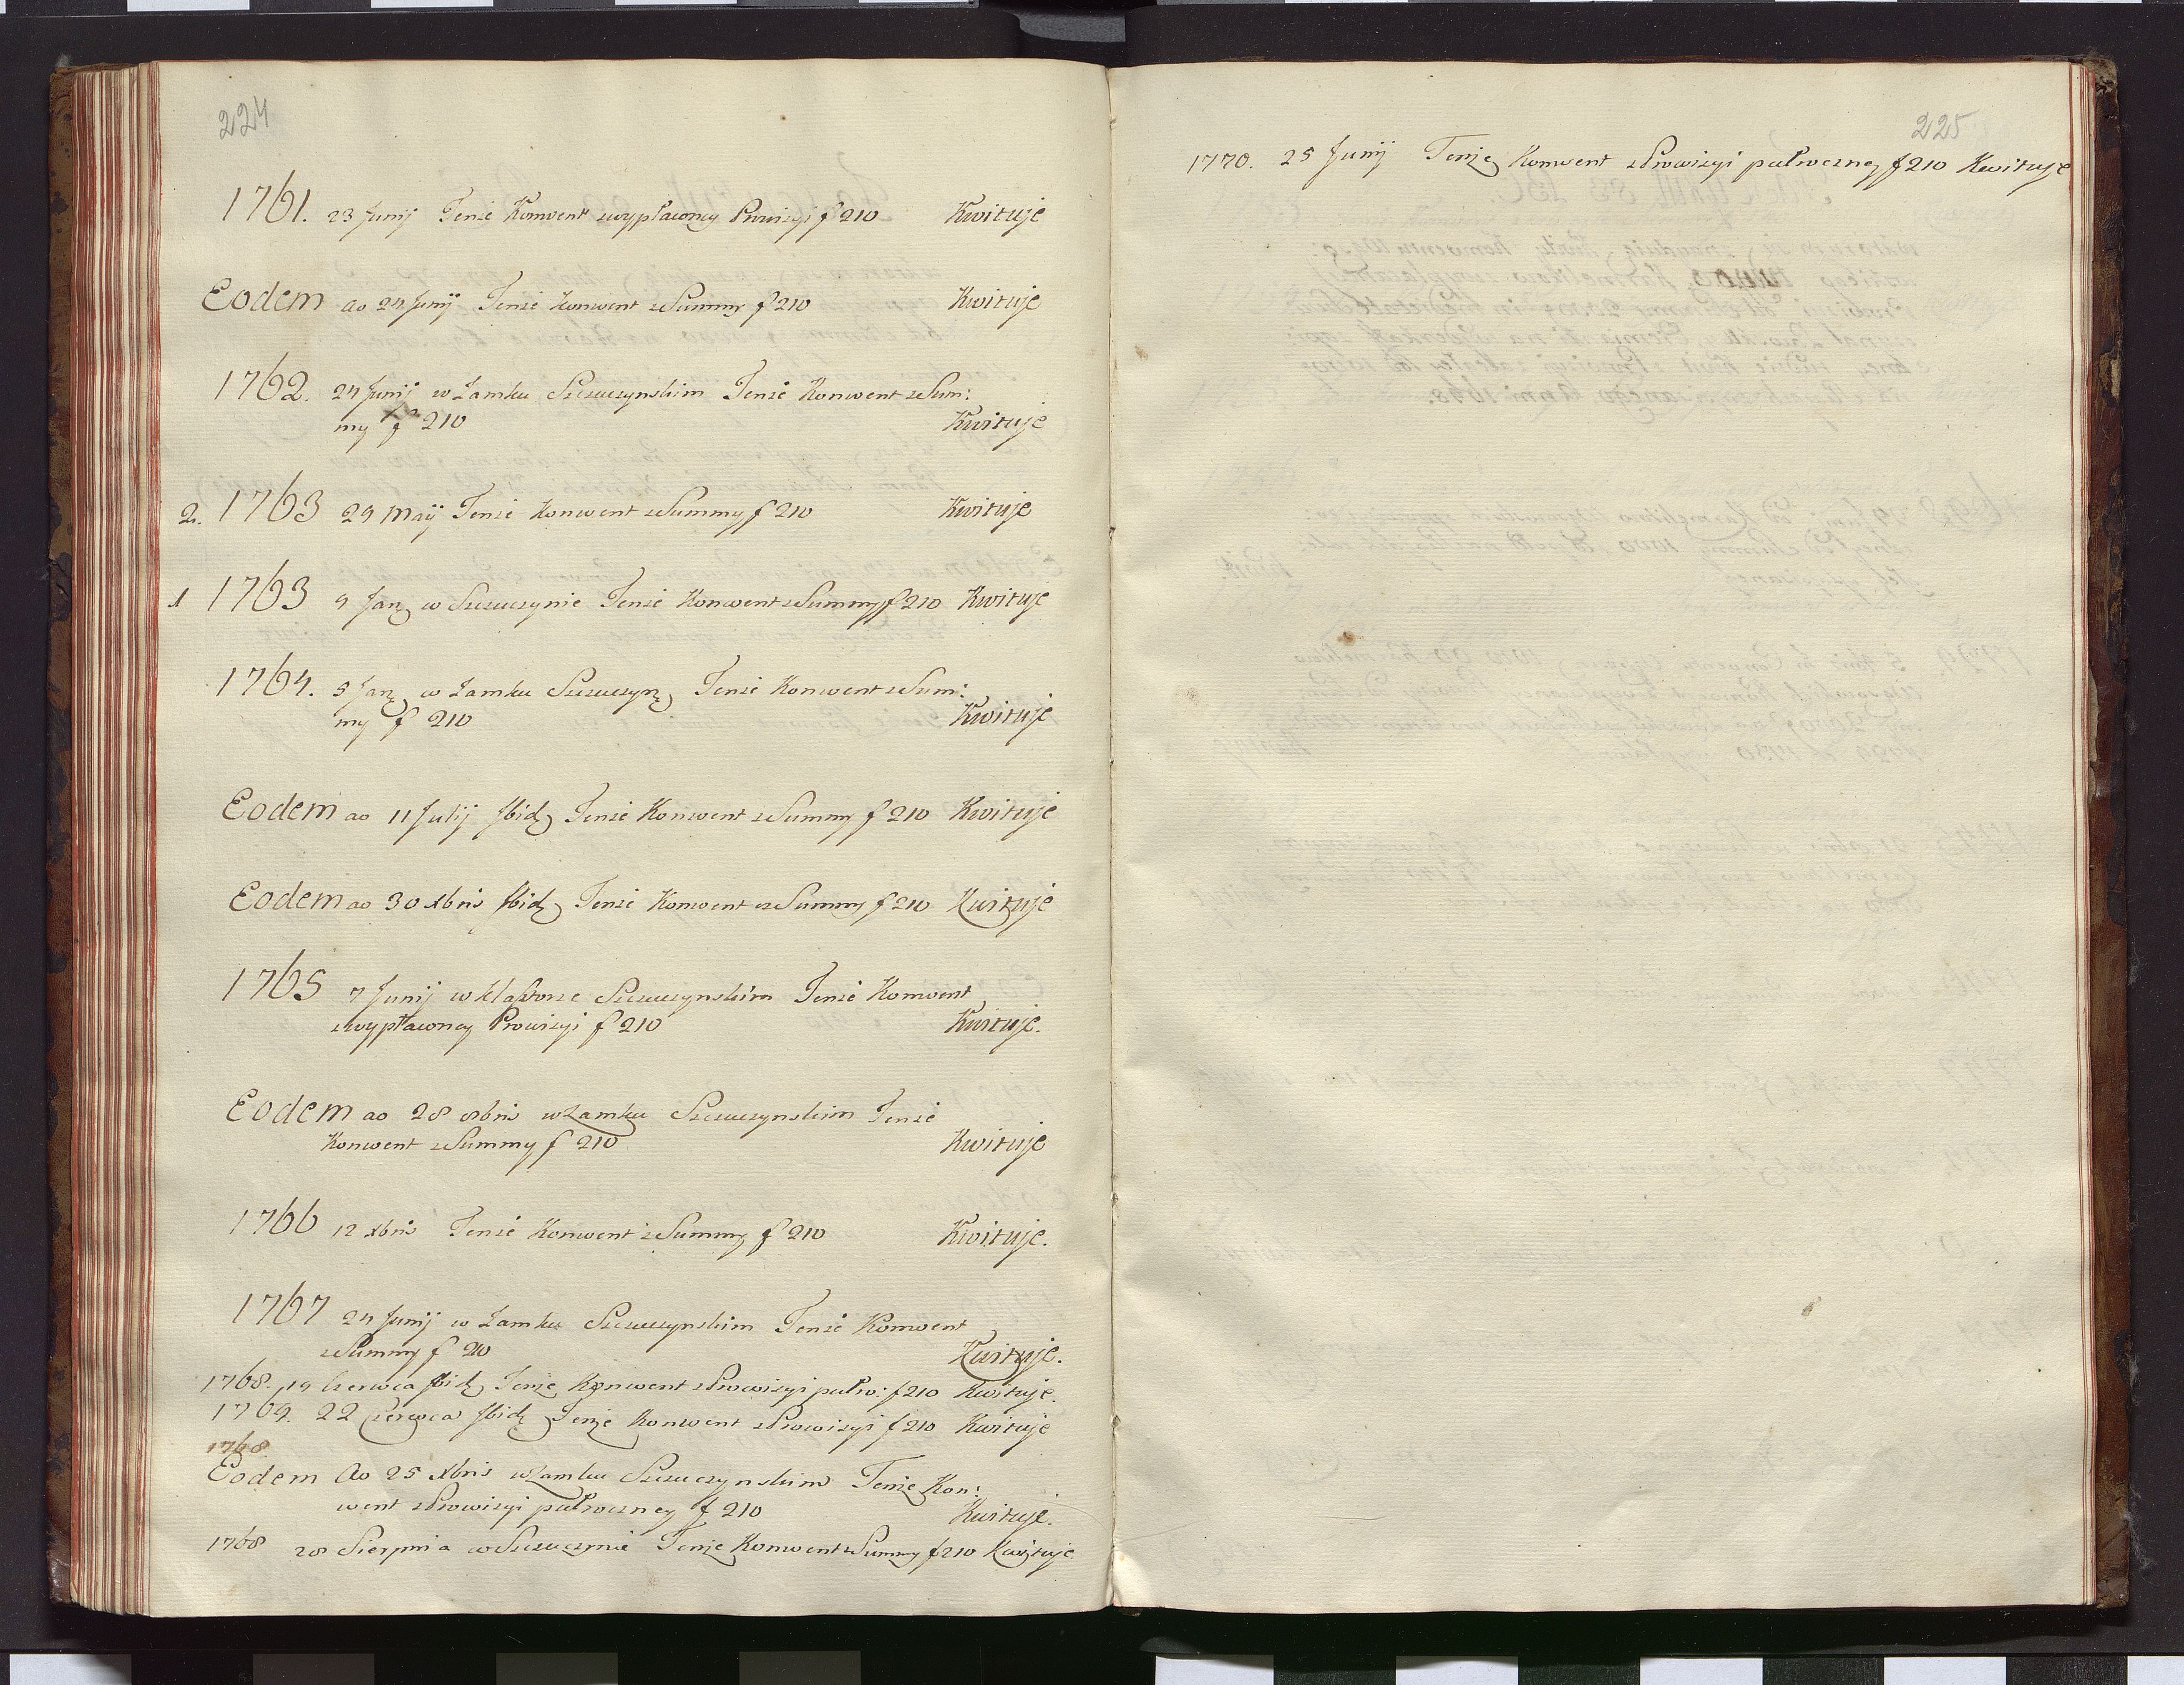 224
1761. 23 Junij Tenże Konwent z wypłaconey Prowizyi f 210 Kwituje
Eodem ao 24 Junij Tenże Konwent z Summy f 210 Kwituje
1762. 24 Junij w Zamku Szczuczynskim Tenże Konwent z Sum:
my f 210 Kwituje
2. 1763 29 Maij Tenże Konwent z Summy f 210 Kwituje
1 1763 9 Jan w Szczuczynie Tenże Konwent z Summy f 210 Kwituje
1764. 5 Jan w Zamku Szczuczyn Tenże Konwent z Sum:
my f 210 Kwituje
Eodem ao 11 Julij Ibid Tenże Konwent z Summy f 210 Kwituje
Eodem ao 30 Xbris Ibid Tenże Konwent z Summy f 210 Kwituje
1765 7 Junij w Klasztorze Szczuczynskim Tenże Konwent
z wypłaconey Prowizyi f 210 Kwituje.
Eodem ao 28 Xbris w Zamku Szczuczynskim Tenże
Konwent z Summy f 210 Kwituje
1766 12 Xbris Tenże Konwent z Summy f 210 Kwituje.
1767 24 Junij w Zamku Szczuczynskim Tenże Konwent
z Summy f 210 Kwituje.
1768. 19 Czerwca Ibid Tenże Konwent z Prowizyi pułro: f 210 Kwituje.
1769. 22 Czerwca Ibid Tenże Konwent z Prowizyi f 210 Kwituje
1768
Eodem Ao 25 Xbris w Zamku Szczuczynskim Tenże Kon:
went z Prowizyi pułroczney f 210 Kwituje.
1768 28 Sierpnia w Szczuczynie Tenże Konwent z Summy f 210 Kwituje
225
1770. 25 Junij Tenże Konwent z Prowizyi pułroczney f 210 Kwituje